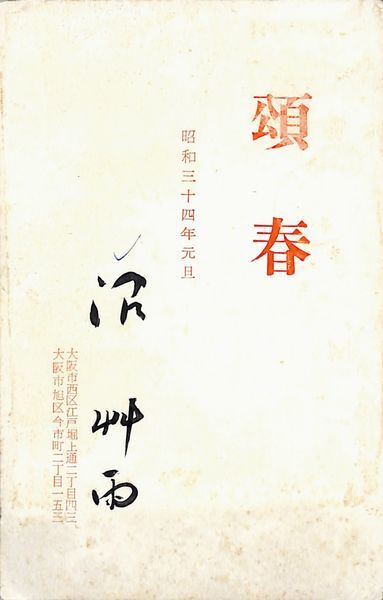 頌春
昭和三十四年元旦
沼艸雨
大阪市西区江戸堀上通二丁目四三
大阪市旭区今市町二丁目一五三